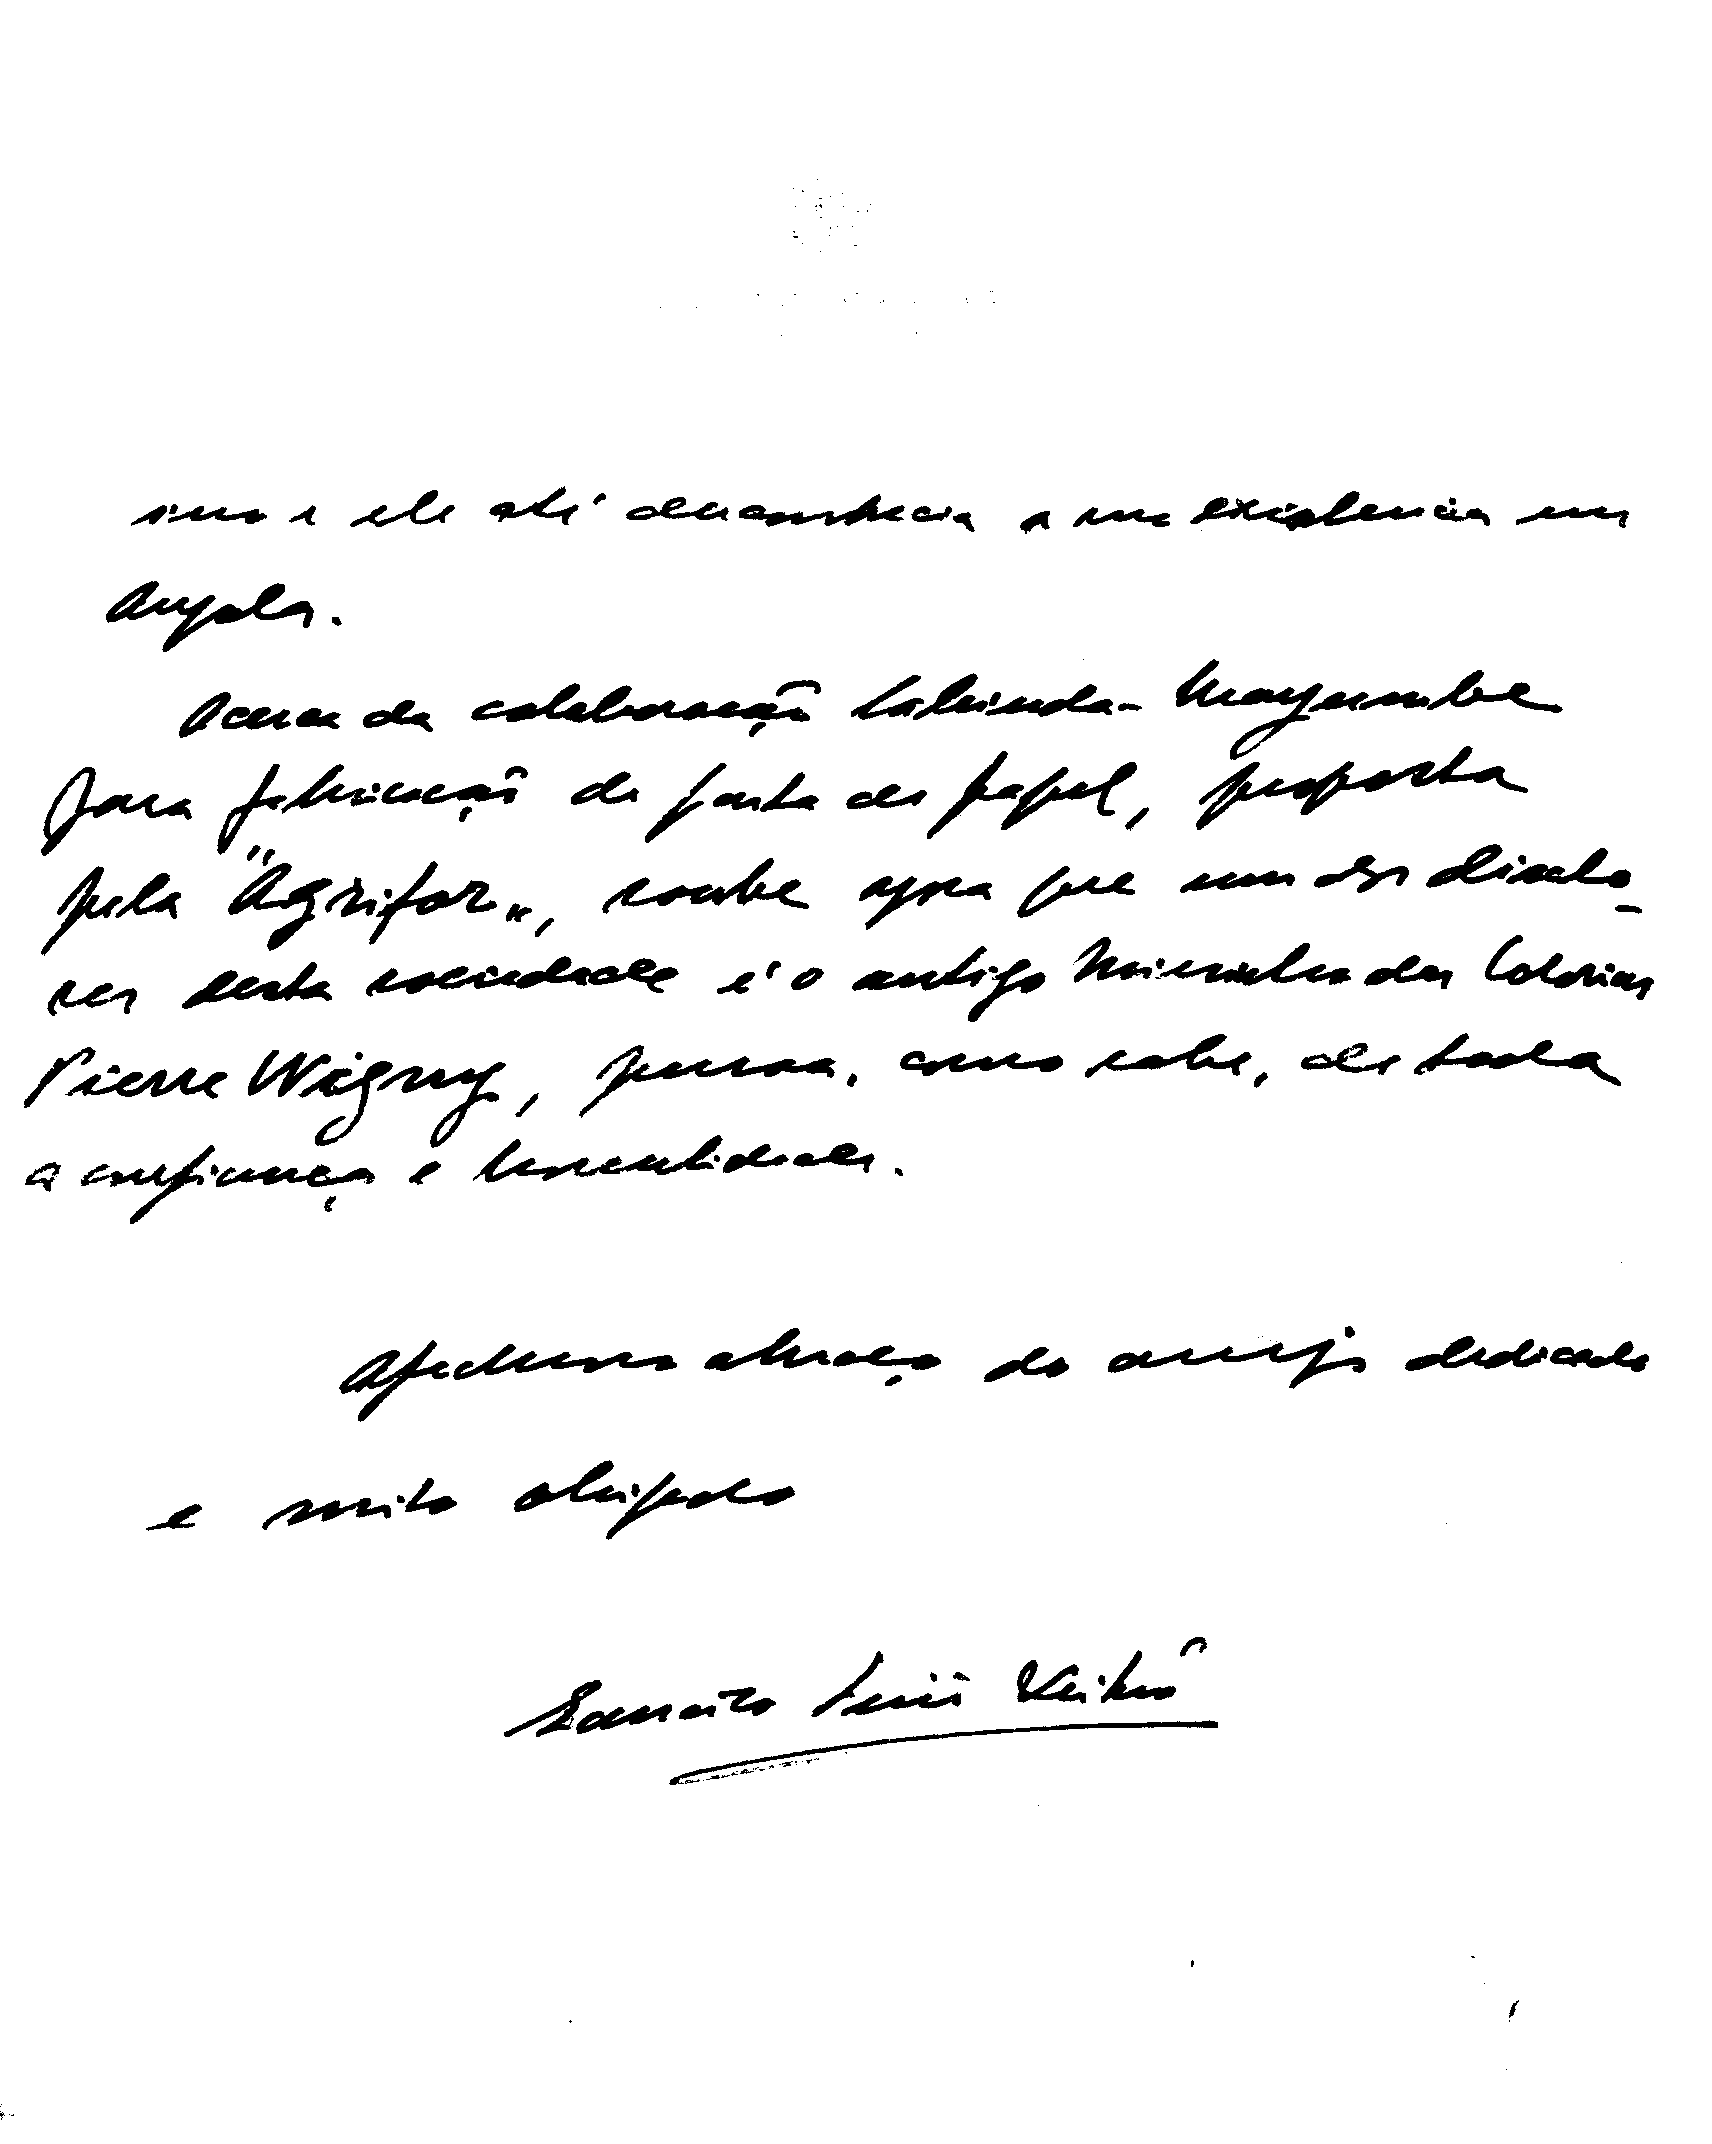 e ele até desconhecia a sua existencia em
Angola.
Acerca da colaboração Cabinda-Mayumbe
para fabricação de pasta de papel, proposta
pela "Agrifor", soube agora que um dos directo-
res desta sociedade é o antigo Ministro das Colonias
Pierre Wigny, pessoa, como sabe, de toda
a confiança e honestidade.
Afectuoso abraço do amigo dedicado
e muito obrigado